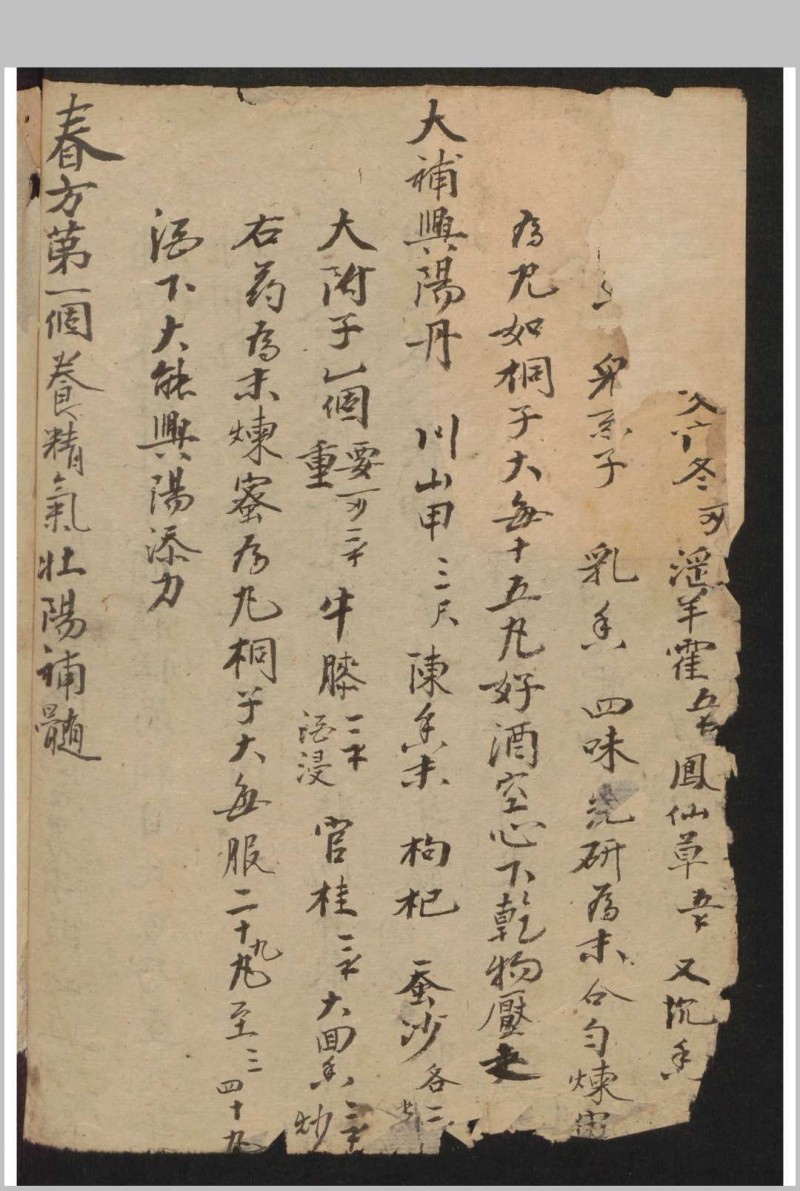 冬 淫羊霍五 鳳仙草 又沉香
子 乳香 四味 研為末合勻煉
為丸如桐子大每十五丸好酒空心下乾物壓之
大補興陽丹 川山甲三 陳 枸杞 蚕沙各二
大附子一個重要 牛膝酒浸 官桂 大回香炒
右药為末煉蜜為丸桐子大每服二十九丸至三四十丸
酒下大能興陽添力
春方第一個養精氣壯陽補髓